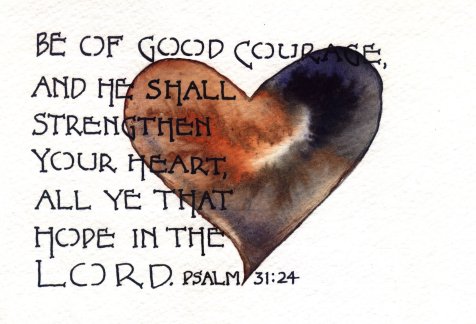 BE OF GOOD COURAGE,
AND HE SHALL
STRENGTHEN
YOUR HEART,
ALL YE THAT
HOPE IN THE
LORD. PSALM 31:24